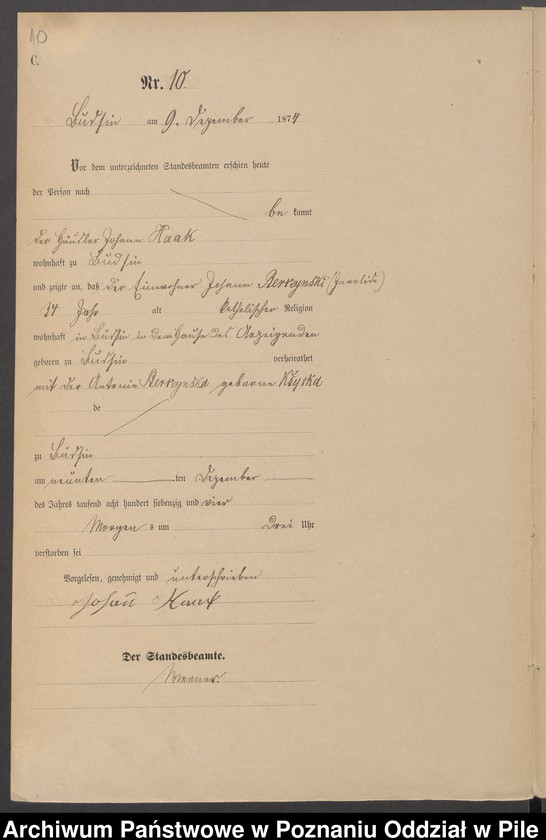 10
C.
Nr. 10.
Budsin am 9. Dezember 1874
Vor dem unterzeichneten Standesbeamten erschien heute
der Person nach
be kannt
der Häusler Johann Haak
wohnhaft zu Budsin
und zeigte an, daß der Einwohner Johann Berczynski (Invalide)
34 Jahr alt katholischer Religion
wohnhaft in Budsin in dem Hause des Anzeigenden
geboren zu Budsin verheirathet
mit der Antonie Berczynska geborne Kłyska
de
zu Budsin
am neunten ten Dezember
des Jahres tausend acht hundert siebenzig und vier
Morgen s um Drei Uhr
verstorben sei
Vorgelesen, genehmigt und unterschrieben
Johan Haak
Der Standesbeamte.
Werner.
Archiwum Państwowe w Poznaniu Oddział w Pile